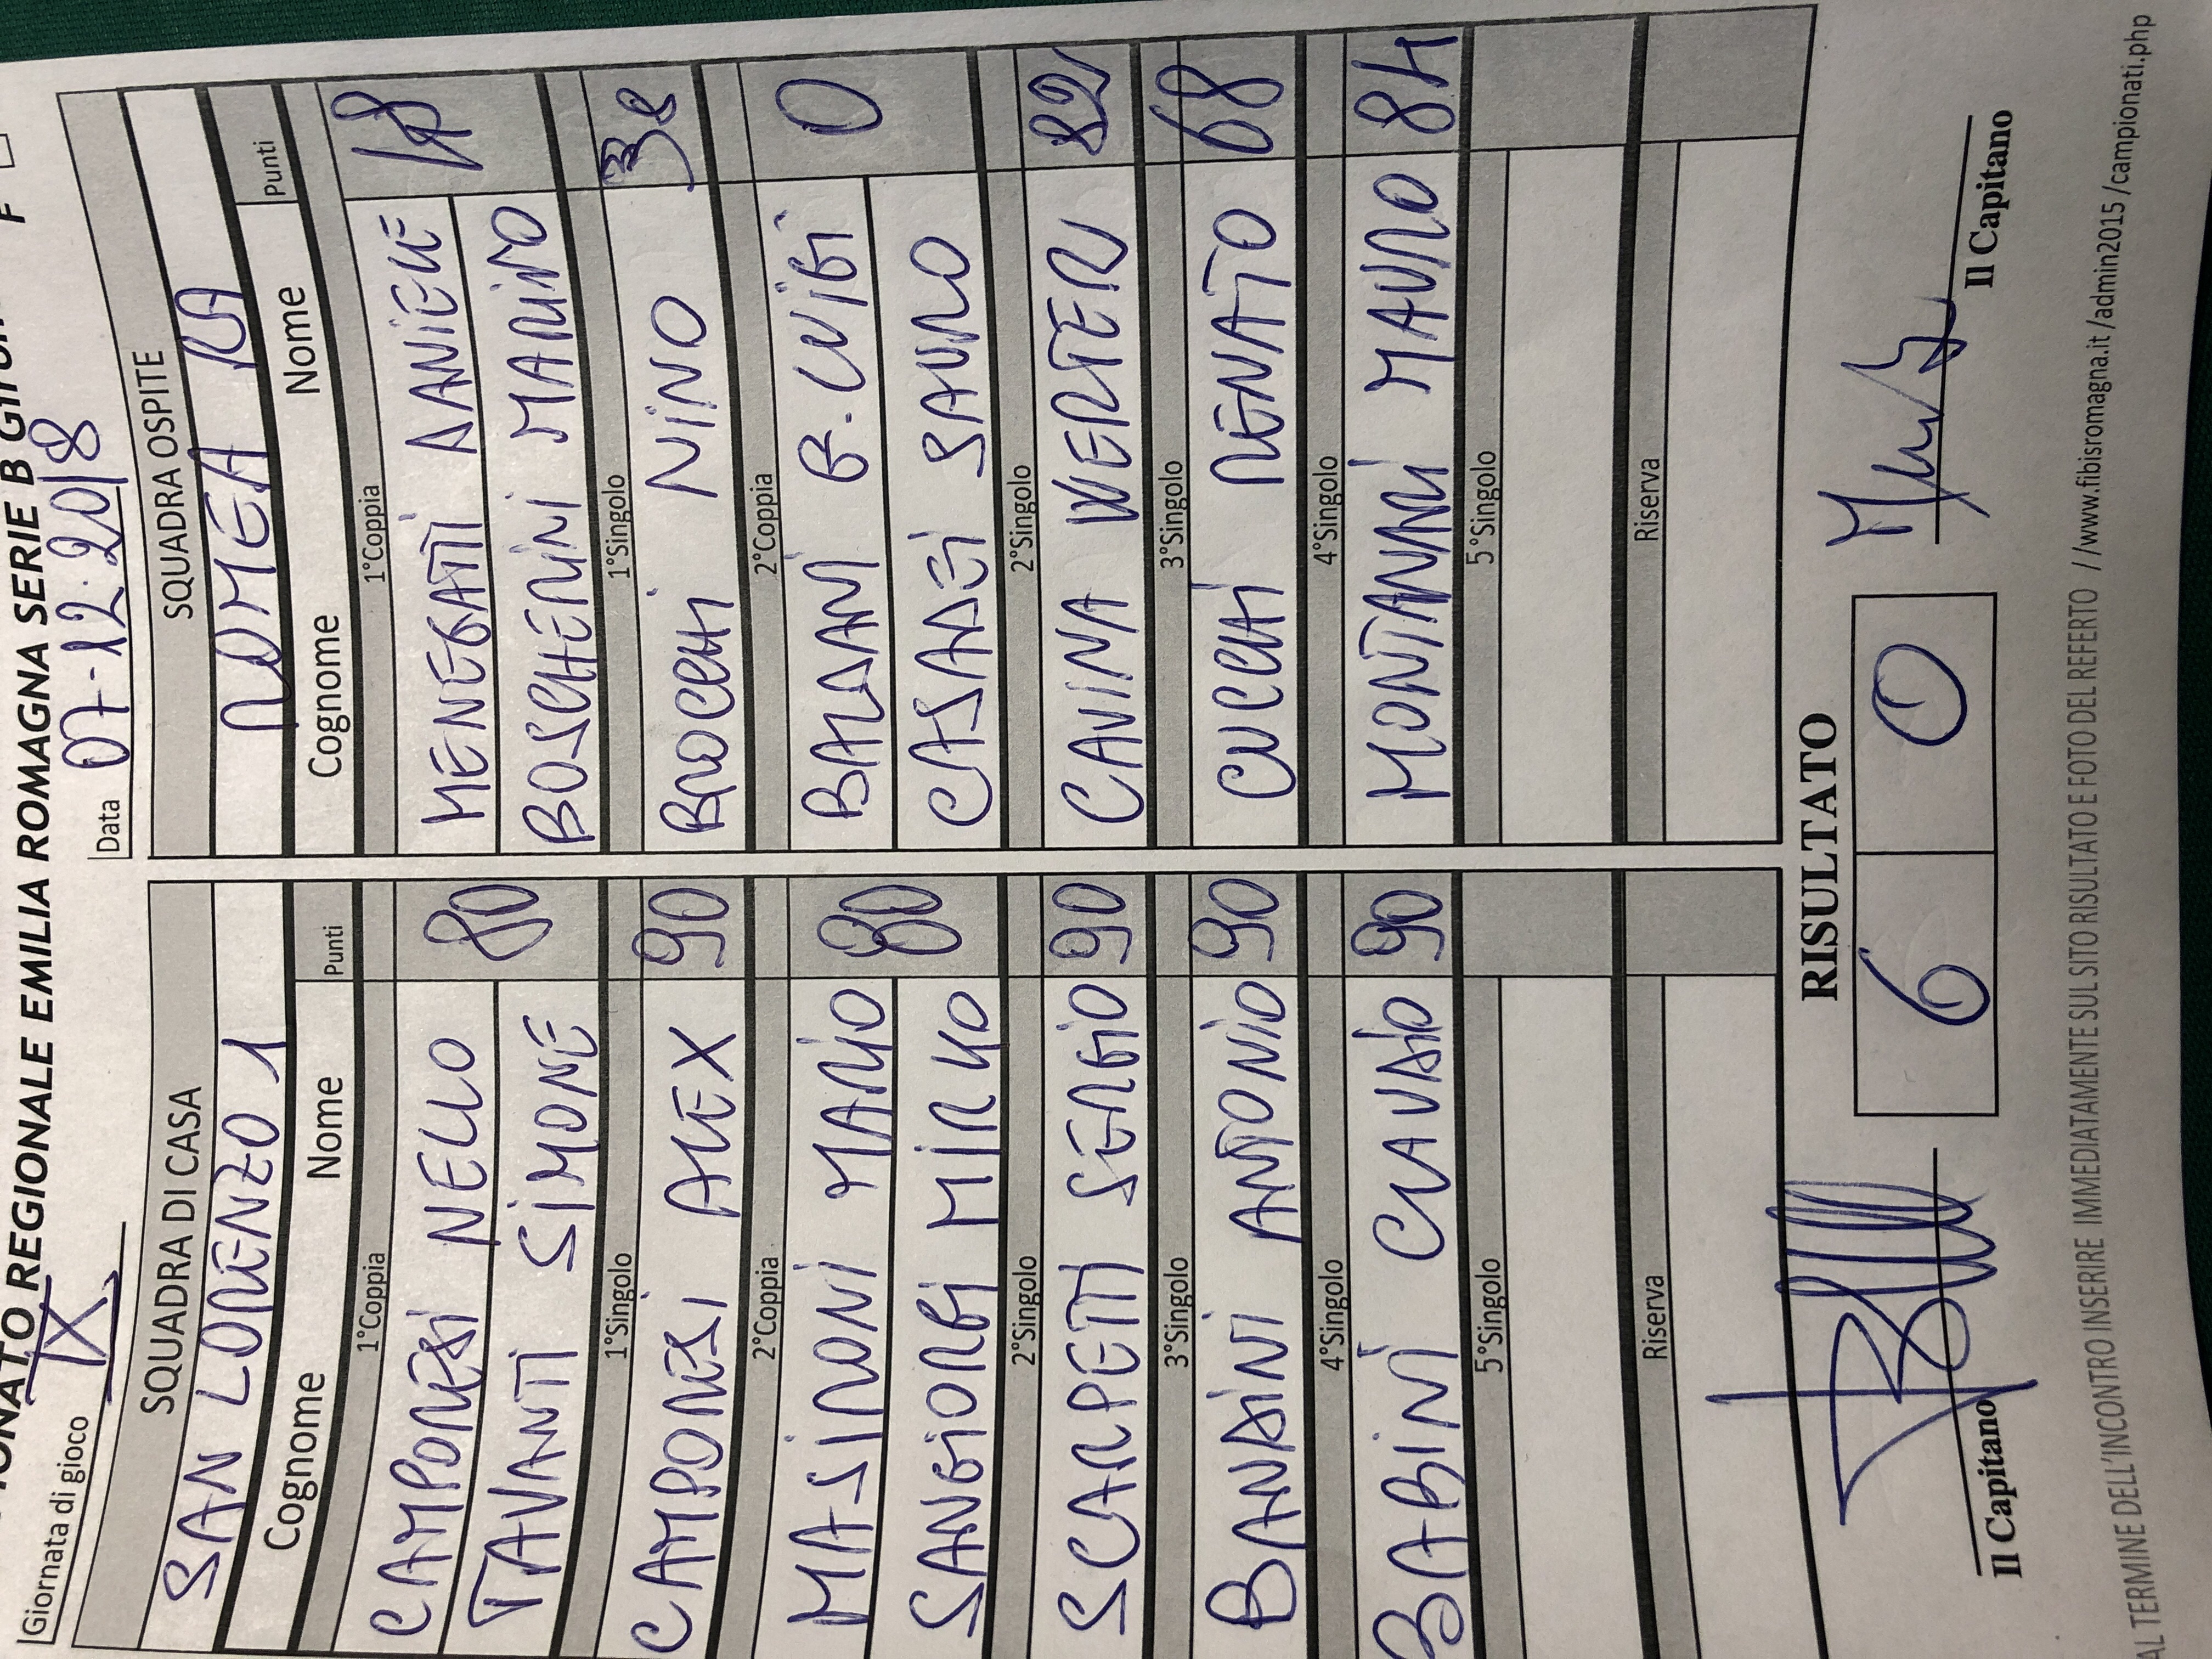 REGIONALE EMILIA ROMAGNA SERIE B
Giornata di gioco IX
Data 07-12-2018
SQUADRA DI CASA SQUADRA OSPITE
SAN LORENZO 1 ROMEA RA
Cognome Nome Punti Cognome Nome Punti
1°Coppia 1°Coppia
CAMPORESI NELLO 80 MENEGATTI DANIELE 48
TAVANTI SIMONE BOSCHERINI MARINO
1°Singolo 1°Singolo
CAMPORESI ALEX 90 BROCCHI NINO
2°Coppia 2°Coppia
MASIRONI MARIO 80 BALDANI B. LUIGI 0
SANGIORGI MIRKO CASADEI SAURO
2°Singolo 2°Singolo
SCARPETTI SERGIO 90 CAVINA WERTER 82
3°Singolo 3°Singolo
BANDINI ANTONIO 90 CUCCHI RENATO 68
4°Singolo 4°Singolo
BABINI CLAUDIO 90 MONTANARI MAURO 84
5°Singolo 5°Singolo
Riserva Riserva
RISULTATO
6 0
Il Capitano Il Capitano
AL TERMINE DELL'INCONTRO INSERIRE IMMEDIATAMENTE SUL SITO RISULTATO E FOTO DEL REFERTO //www.fibisromagna.it /admin2015 /campionati.php